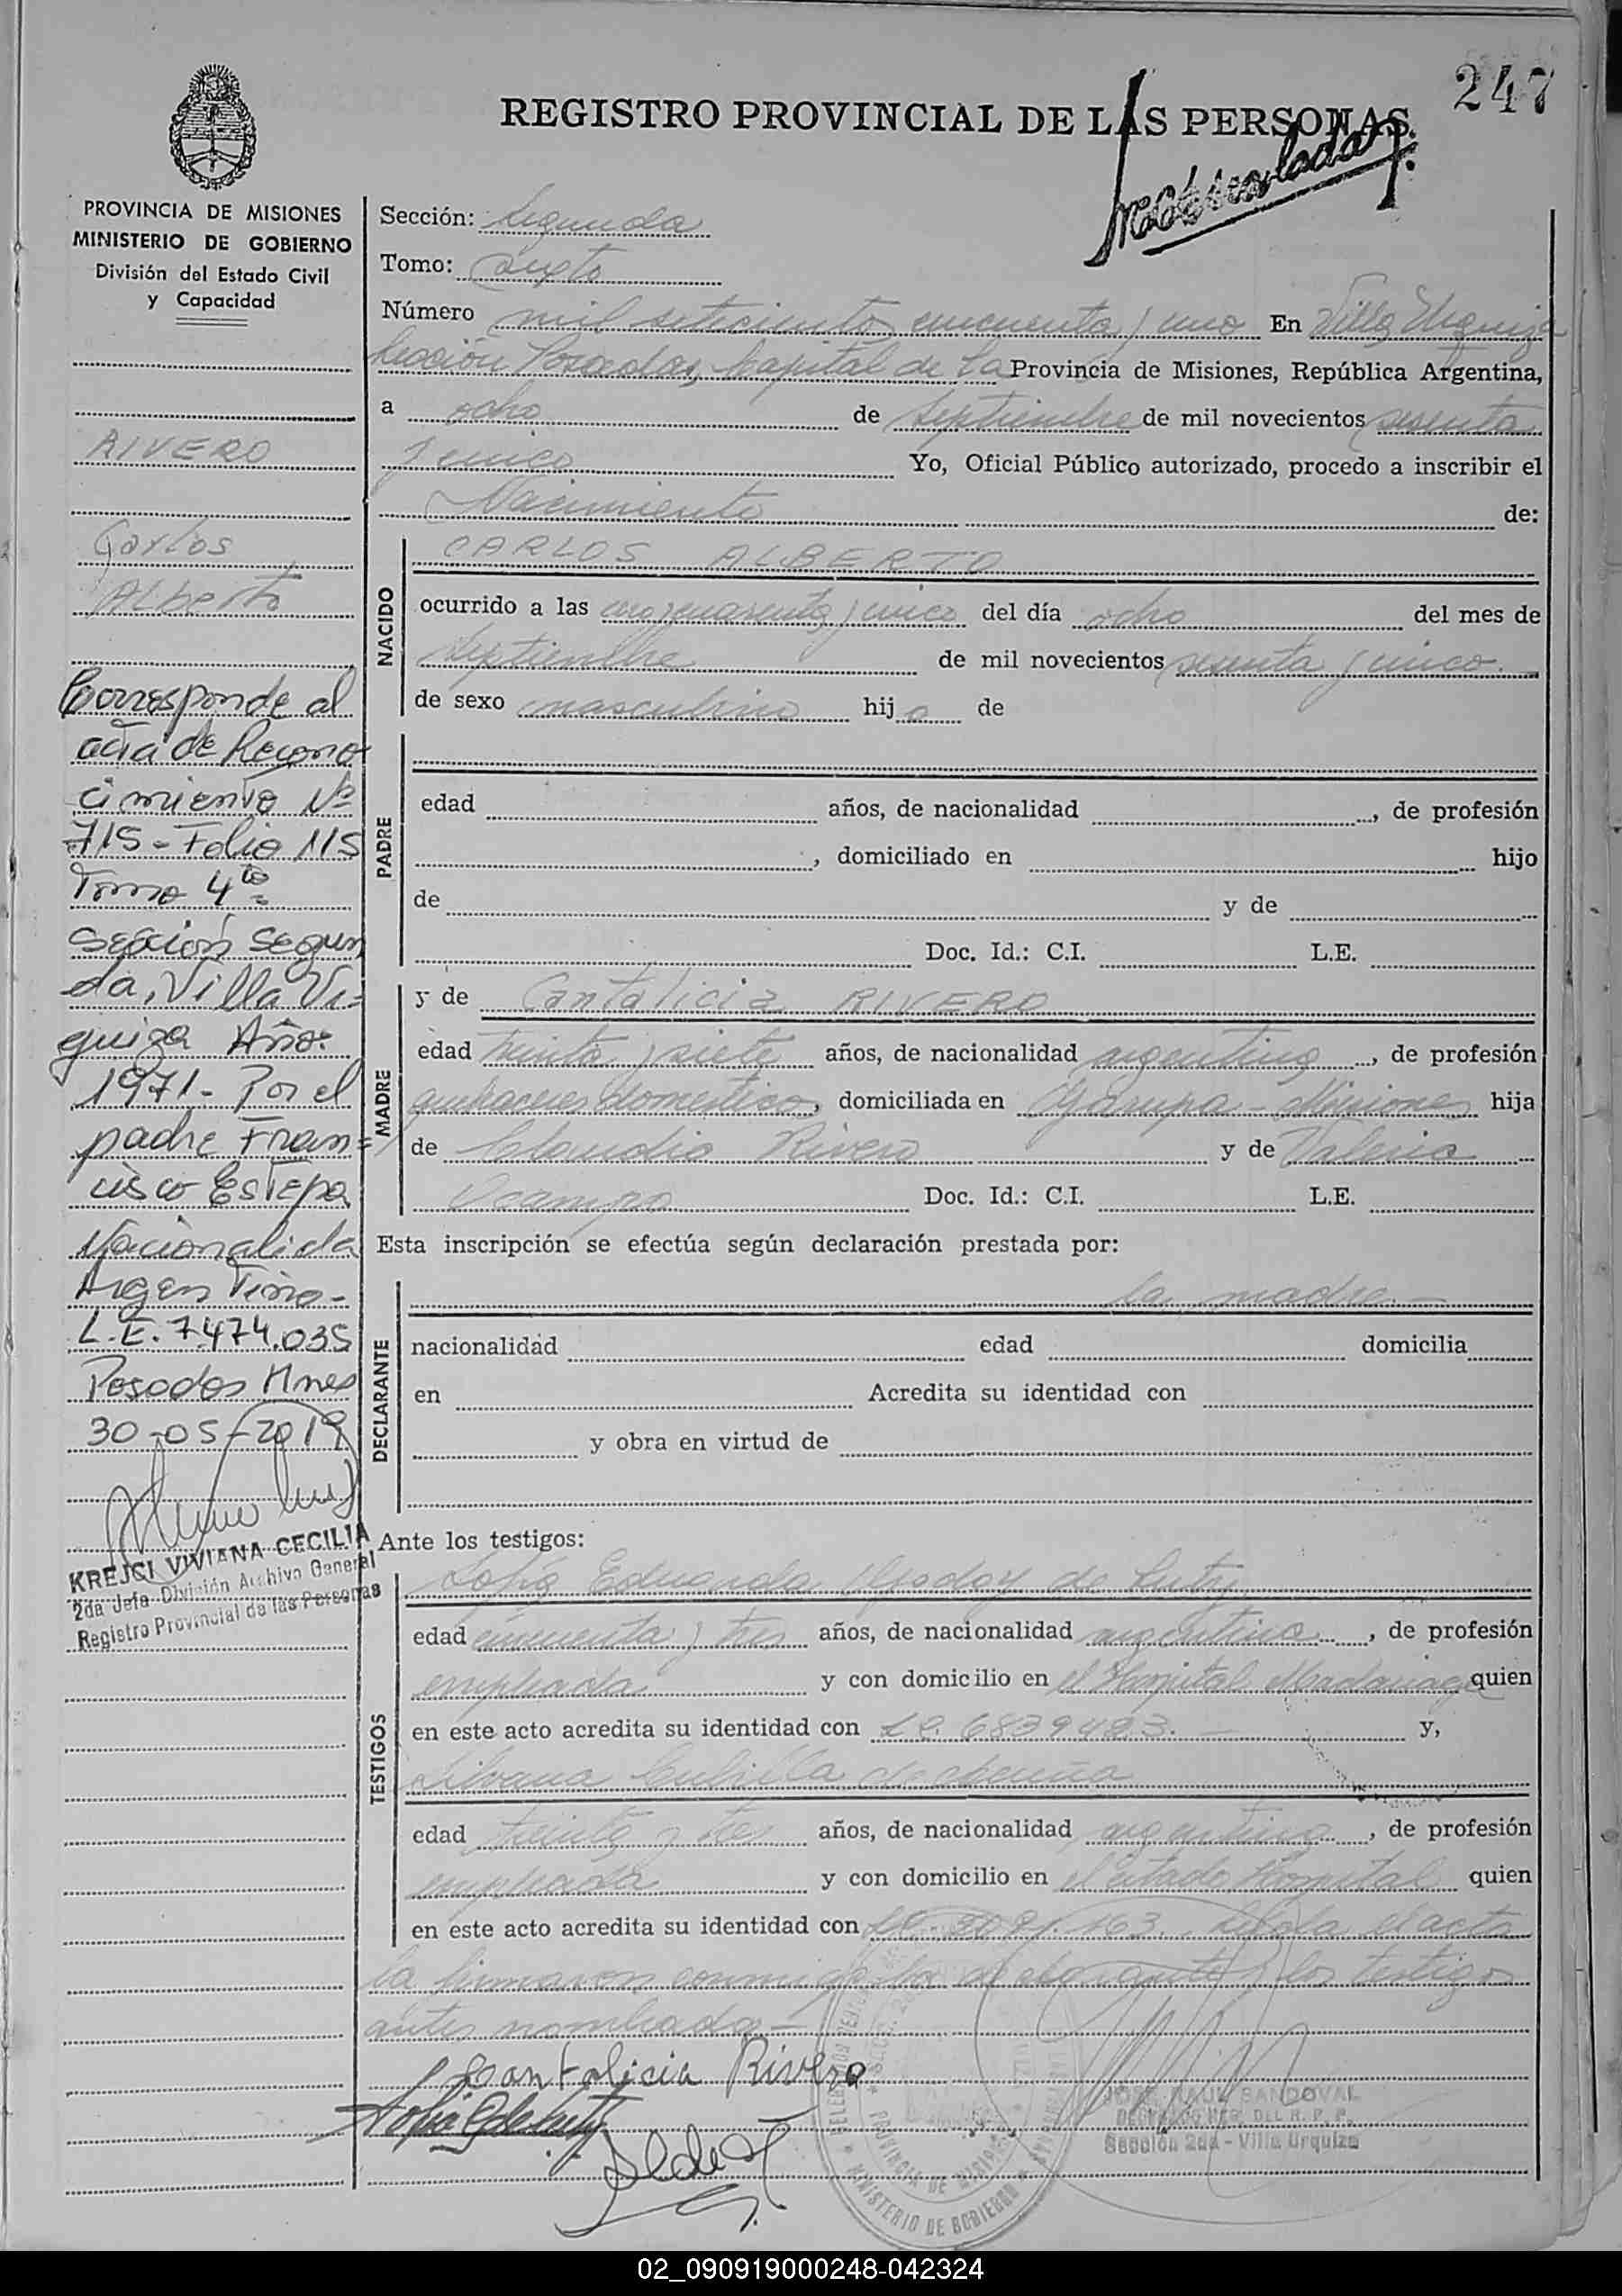 247
REGISTRO PROVINCIAL DE LAS PERSONAS.
PROVINCIA DE MISIONES
MINISTERIO DE GOBIERNO
División del Estado Civil
y Capacidad
RIVERO
Carlos
Alberto
Corresponde al
acta de Recono
cimiento Nº
715 - Folio 115
Tomo 4to
Sección Segun
da, Villa Ur=
quiza Año:
1971 - Por el
padre Fran=
cisco Estepa
Nacionalida
Argentino -
L.E. 7.474.035
Posadas Mnes
30-05-2019
KREJCI VIVIANA CECILIA
2da Jefa División Archivo General
Registro Provincial de las Personas
Sección: Segunda
Tomo: Sexto
Número mil setecientos cincuenta y uno En Villa Urquiza
Sección Posadas, Capital de la Provincia de Misiones, República Argentina,
a ocho de Septiembre de mil novecientos sesenta
y cinco Yo, Oficial Público autorizado, procedo a inscribir el
Nacimiento de:
NACIDO
CARLOS ALBERTO
ocurrido a las cero y cuarenta y cinco del día ocho del mes de
Septiembre de mil novecientos sesenta y cinco.
de sexo masculino hijo de
PADRE
edad años, de nacionalidad , de profesión
, domiciliado en hijo
de y de
Doc. Id.: C.I. L.E.
MADRE
y de Cantalicia RIVERO
edad treinta y siete años, de nacionalidad argentina , de profesión
quehaceres domesticos, domiciliada en Garupa - Misiones hija
de Claudio Rivero y de Valeria
Ocampo Doc. Id.: C.I. L.E.
Esta inscripción se efectúa según declaración prestada por:
DECLARANTE
la madre.-
nacionalidad edad domicilia
en Acredita su identidad con
y obra en virtud de
Ante los testigos:
TESTIGOS
Sofia Eduarda Godoy de
edad cincuenta y tres años, de nacionalidad argentina , de profesión
empleada y con domicilio en el Hospital Madariaga quien
en este acto acredita su identidad con LC. 6839483. - y,
Silvana de
edad treinta y tres años, de nacionalidad argentina , de profesión
empleada y con domicilio en el citado Hospital quien
en este acto acredita su identidad con LC. 163. Leída el acta
la firmaron conmigo la declarante y los testigos
antes nombrados -
Cantalicia Rivero
JOSE RAUL SANDOVAL
DEL R. P. P.
Sección 2da - Villa Urquiza
PROVINCIA DE MISIONES
MINISTERIO DE GOBIERNO
02_090919000248-042324